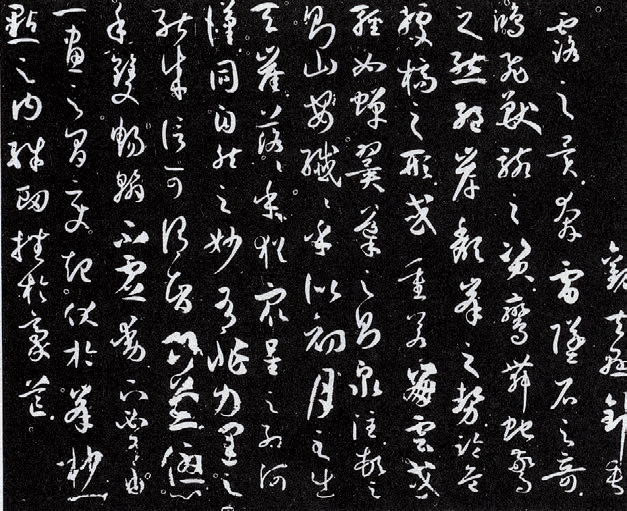 觀夫懸針垂
露之異奔雷墜石之奇
鴻飛獸駭之資鸞舞蛇驚
之態絕岸頹峯之勢臨危
據槁之形或重若崩雲或
輕如蟬翼導之則泉注頓之
則山安纖纖乎似初月之出
天崖落落乎猶眾星之列河
漢同自然之妙有非力運之
能成信可謂智巧兼優心
手雙暢翰不虛動下必有由
一畫之間變起伏於峯杪一
點之內殊衄挫於豪芒